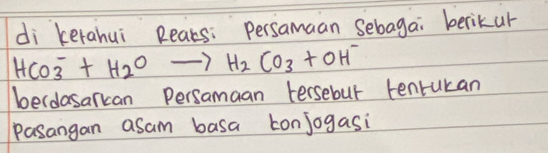 di ketahui Reaksi Persamaan Sebagai berikut
HCO₃⁻ + H₂O → H₂CO₃ + OH⁻
berdasarkan Persamaan tersebut tentukan
Pasangan asam basa konjogasi